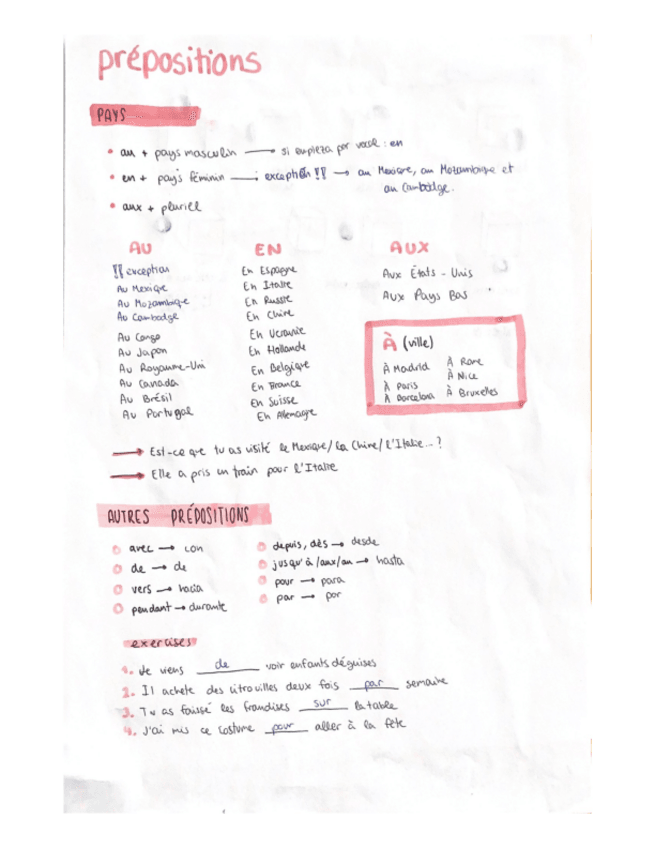 prépositions
PAYS
• au + pays masculin → si empieza por vocal : en
• en + pays féminin → exception !! → au Mexique, au Mozambique et
au Cambodge.
• aux + pluriel
AU
!! exception
Au Mexique
Au Mozambique
Au Cambodge
Au Congo
Au Japon
Au Royaume-Uni
Au Canada
Au Brésil
Au Portugal
EN
En Espagne
En Italie
En Russie
En Chine
En Ucranie
En Hollande
En Belgique
En France
En Suisse
En Allemagne
AUX
Aux États - Unis
Aux Pays Bas
À (ville)
À Madrid
À Paris
À Barcelona
À Rome
À Nice
À Bruxelles
→ Est-ce que tu as visité le Mexique/ la Chine/ l'Italie...?
→ Elle a pris un train pour l'Italie
AUTRES PRÉPOSITIONS
avec → con
de → de
vers → hacia
pendant → durante
depuis, dès → desde
jusqu'à /aux/au → hasta
pour → para
par → por
exercises
1. Je viens de voir enfants déguises
2. Il achete des citrouilles deux fois par semaine
3. Tu as laissé les friandises sur la table
4. J'ai mis ce costume pour aller à la fête